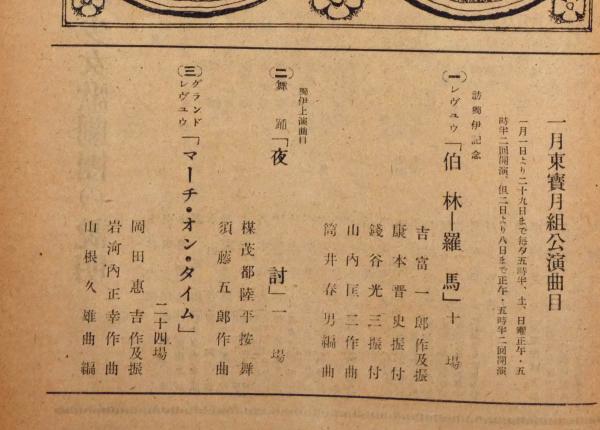 一月東寳月組公演曲目
一月一日より二十九日まで毎夕五時半、土、日曜正午・五
時半二回開演、但二日より八日まで正午・五時半二回開演
訪獨伊記念
(一)レヴュウ「伯林―羅馬」十場
吉富一郎作及振
康本晋史振付
錢谷光三振付
山内匡二作曲
筒井春男編曲
獨伊上演曲目
(二)舞踊「夜討」一場
楳茂都陸平按舞
須藤五郎作曲
(三)グランドレヴュウ「マーチ・オン・タイム」
二十四場
岡田惠吉作及振
岩河内正幸作曲
山根久雄曲編